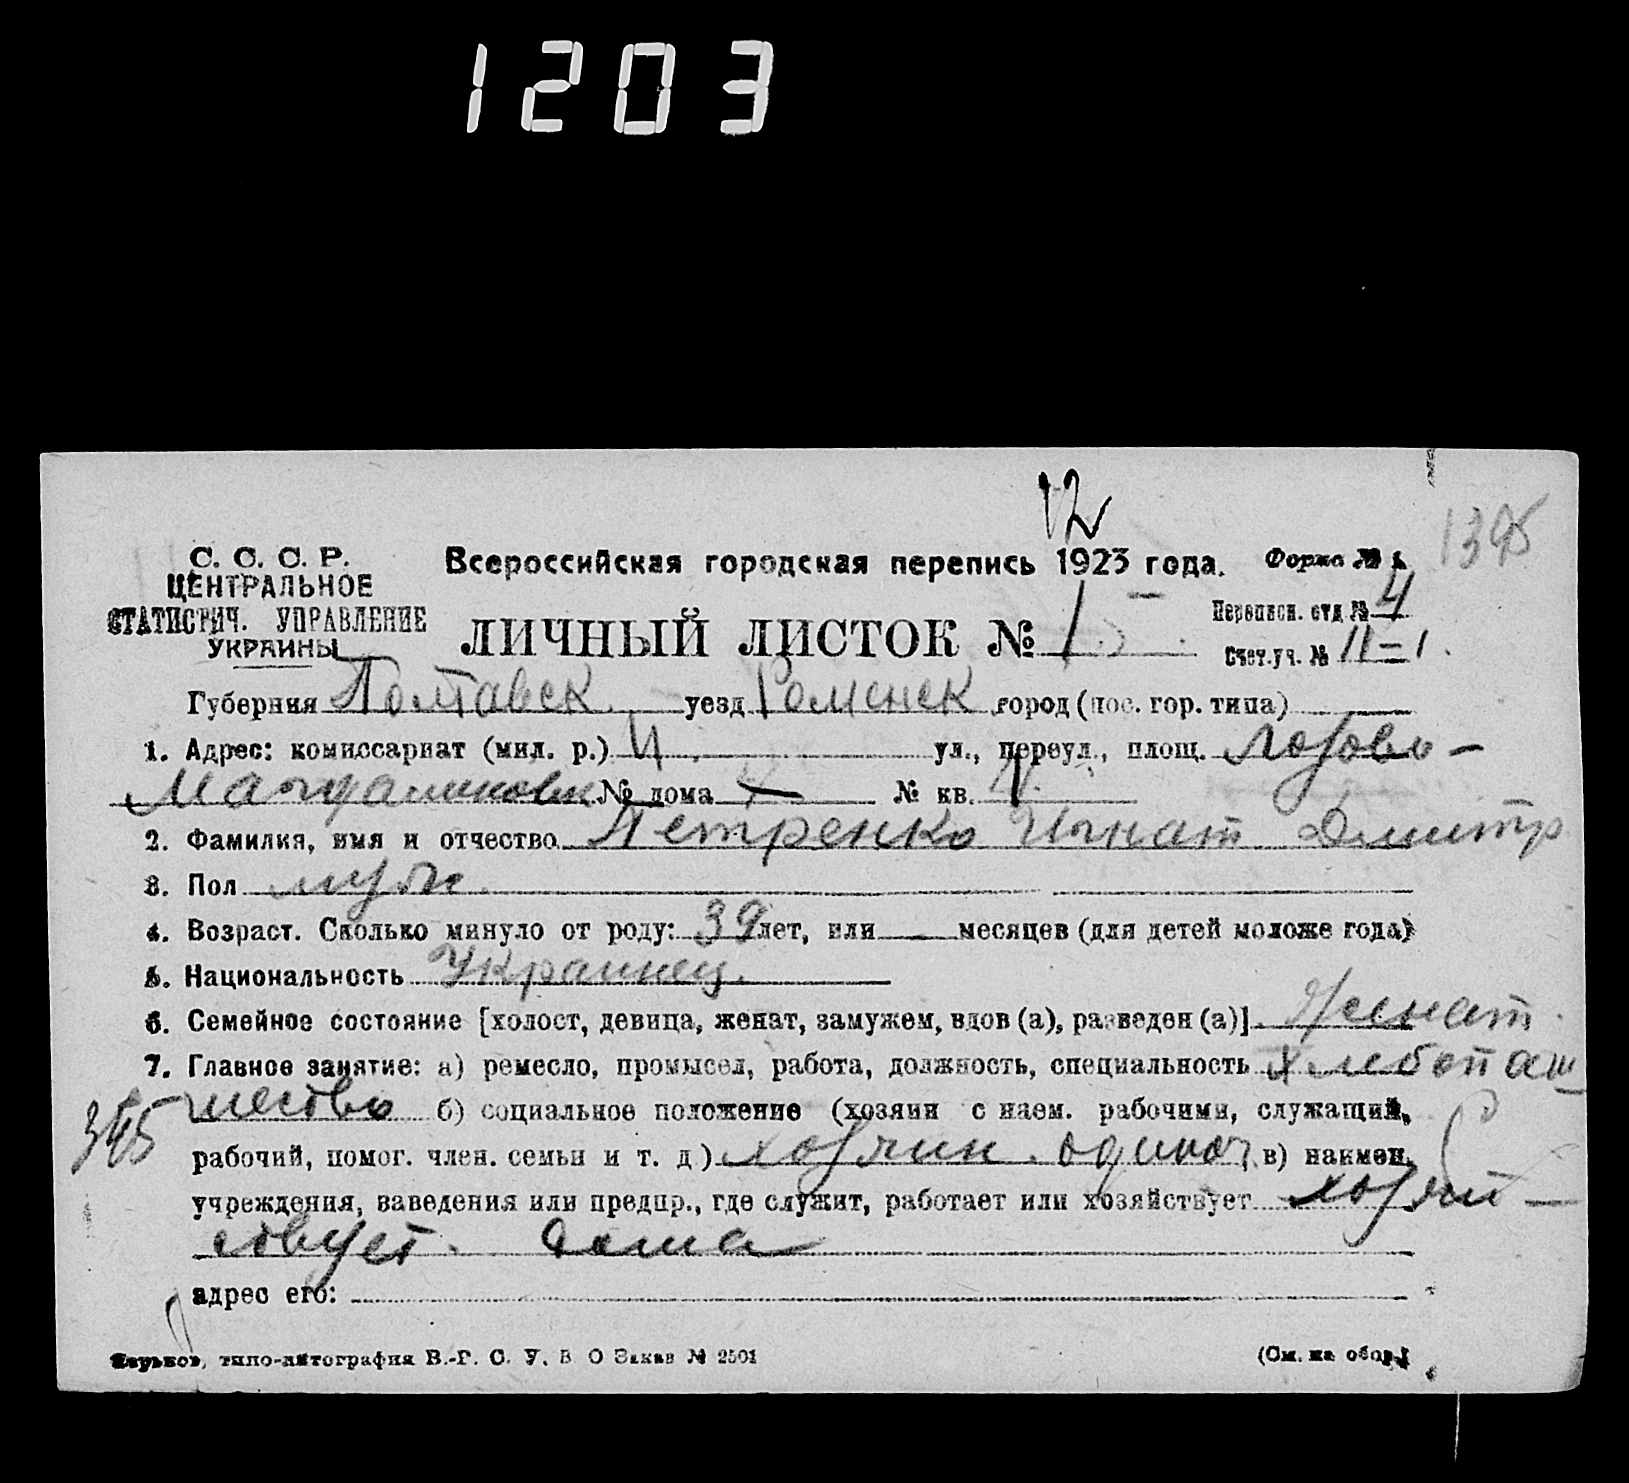 1203
12
1395
С. С. С. Р.
ЦЕНТРАЛЬНОЕ
СТАТИСТИЧ. УПРАВЛЕНИЕ
УКРАИНЫ
Всероссийская городская перепись 1923 года.
Форма № 1.
ЛИЧНЫЙ ЛИСТОК № 1
Переписн. отд № 4
Счет.уч. № 11-1.
Губерния Полтавск. уезд Роменск город (пос. гор. типа)
1. Адрес: комиссариат (мил. р.) 4 ул., переул., площ. Лозово-
№ дома № кв.
2. Фамилия, имя и отчество Петренко Игнат Дмитр
3. Пол муж.
4. Возраст. Сколько минуло от роду: 39 лет, или — месяцев (для детей моложе года)
5. Национальность Украинец.
6. Семейное состояние [холост, девица, женат, замужем, вдов (а), разведен (а)] Женат.
7. Главное занятие: а) ремесло, промысел, работа, должность, специальность хлебопаш
345 шество б) социальное положение (хозяин с наем. рабочими, служащий,
рабочий, помог. член. семьи и т. д.) хозяин. одиноч. в) наимен.
учреждения, заведения или предпр., где служит, работает или хозяйствует хозяй-
ствует. дома
адрес его:
Харьков, типо-литография В.-Г. С. У. В О Заказ № 2501
(См. на обор.)